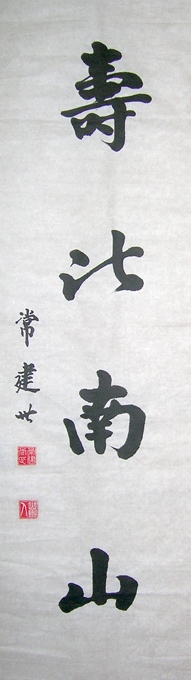 壽比南山
常建世